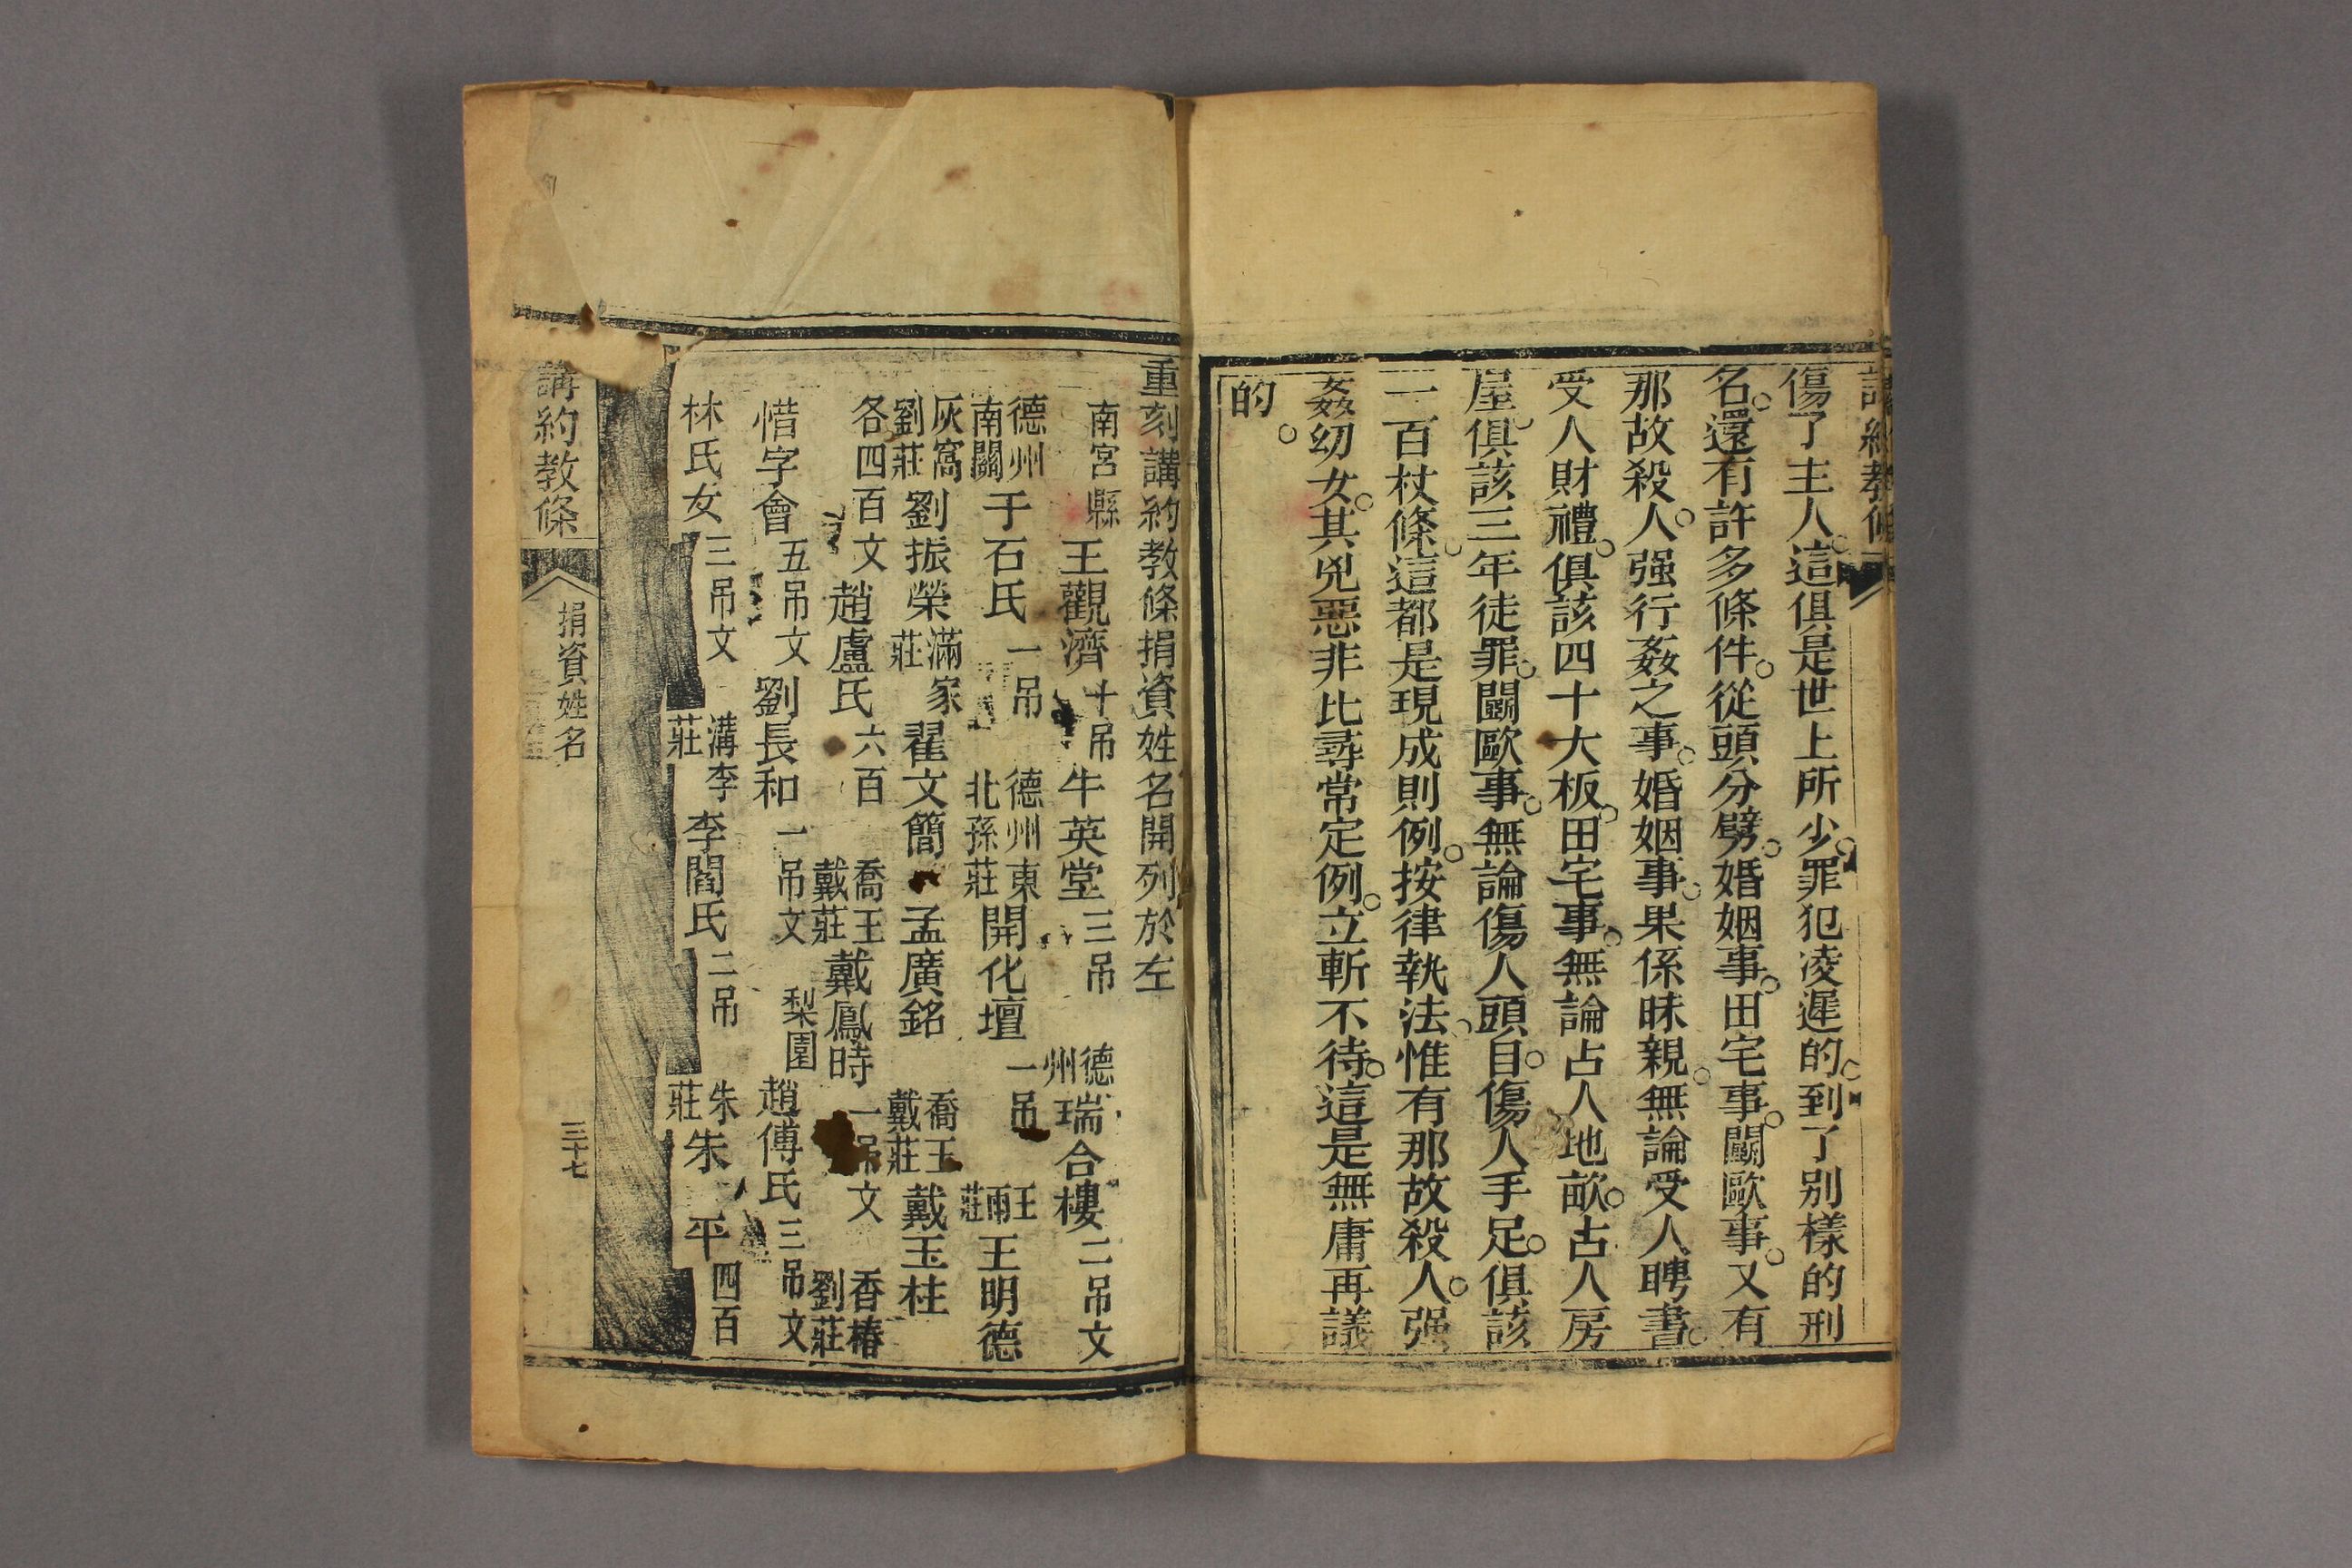 講約教條
傷了主人。這俱是世上所少。罪犯凌遲的。到了別樣的刑
名。還有許多條件。從頭分劈。婚姻事。田宅事。鬭毆事。又有
那故殺人。强行姦之事。婚姻事。果係昧親。無論受人聘書。
受人財禮。俱該四十大板。田宅事。無論占人地畝。占人房
屋。俱該三年徒罪。鬭毆事。無論傷人頭目。傷人手足。俱該
一百杖條。這都是現成則例。按律執法。惟有那故殺人。强
姦幼女。其兇惡非比尋常定例。立斬不待。這是無庸再議
的。
重刻講約教條捐資姓名開列於左
南宮縣 王觀濟 十吊 牛英堂 三吊 德州 瑞合樓 二吊文
德州南關 于石氏 一吊 德州東北孫莊 開化壇 一吊 王雨莊 王明德
灰窩劉莊 劉振榮 滿家莊 翟文簡 孟廣銘 喬王戴莊 戴玉柱
各四百文 趙盧氏 六百 喬王戴莊 戴鳳時 一吊文 香椿劉莊
惜字會 五吊文 劉長和 一吊文 梨園 趙傅氏 三吊文
林氏女 三吊文 溝李莊 李閻氏 二吊 朱莊 朱平 四百
講約教條 捐資姓名 三十七